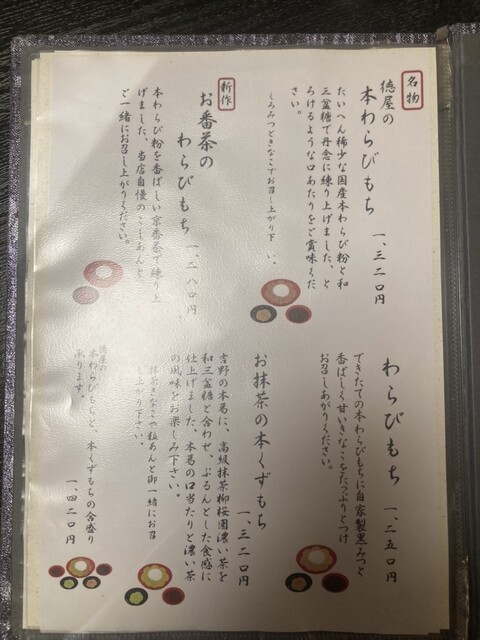 名物
徳屋の
本わらびもち 一、三二〇円
たいへん稀少な国産本わらび粉と和
三盆糖で丹念に練り上げました、と
ろけるような口あたりをご賞味くだ
さい。
くろみつときなこでお召し上がり下さい。
新作
お番茶の
わらびもち 一、二八〇円
本わらび粉を香ばしい京番茶で練り上
げました、当店自慢のこしあんと
ご一緒にお召し上がりください。
わらびもち 一、二五〇円
できたての本わらびもちに自家製黒みつと
香ばしく甘いきなこをたっぷりとつけ
お召しあがりください。
お抹茶の本くずもち
一、三二〇円
吉野の本葛に、高級抹茶柳桜園濃い茶を
和三盆糖と合わせ、ぷるんとした食感に
仕上げました、本葛の口当たりと濃い茶
の風味をお楽しみ下さい。
抹茶きなこや粒あんと御一緒にお召
し上がり下さい。
徳屋の
本わらびもちと、本くずもちの合盛り
承ります。
一、四二〇円